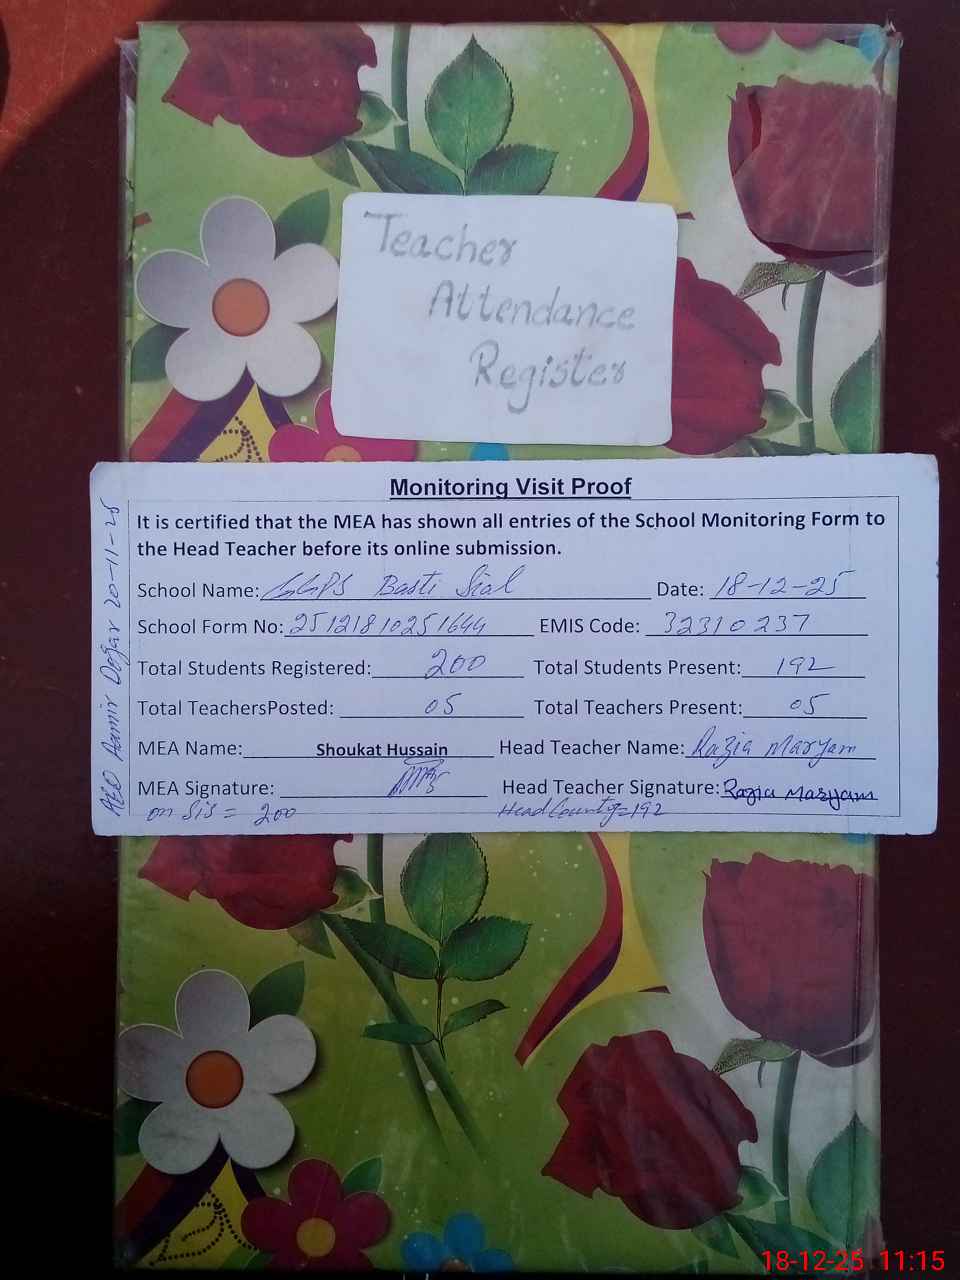 Teacher
Attendance
Register
Monitoring Visit Proof
It is certified that the MEA has shown all entries of the School Monitoring Form to
the Head Teacher before its online submission.
School Name: GGPS Basti Sial Date: 18-12-25
School Form No: 25121810251644 EMIS Code: 32310237
Total Students Registered: 200 Total Students Present: 192
Total TeachersPosted: 05 Total Teachers Present: 05
MEA Name: Shoukat Hussain Head Teacher Name: Razia Maryam
MEA Signature: Head Teacher Signature: Razia Maryam
on Sis = 200 Head County=192
AEO Aamir Dogar 20-11-25
18-12-25 11:15